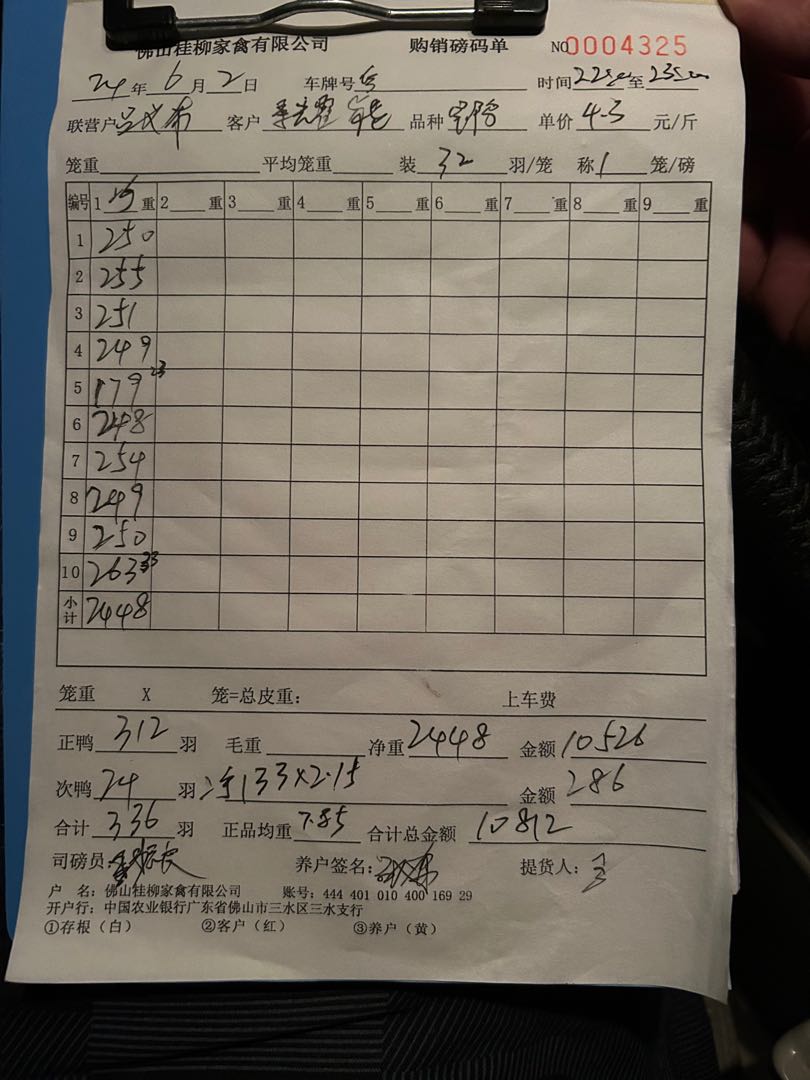 佛山桂柳家禽有限公司 购销磅码单 NO 0004325
24年6月2日 车牌号 时间 至
联营户 吕 布 客户 李 品种 单价 4.3 元/斤
笼重 平均笼重 装 32 羽/笼 称 1 笼/磅
编号 1 净 重 2 重 3 重 4 重 5 重 6 重 7 重 8 重 9 重
1 250
2 255
3 251
4 249
5 179 23
6 248
7 254
8 249
9 250
10 263 33
小计 2448
笼重 X 笼=总皮重: 上车费
正鸭 312 羽 毛重 净重 2448 金额 10526
次鸭 24 羽 净133×2.15 金额 286
合计 336 羽 正品均重 7.85 合计总金额 10812
司磅员: 养户签名: 提货人:
户 名: 佛山桂柳家禽有限公司 账号: 444 401 010 400 169 29
开户行: 中国农业银行广东省佛山市三水区三水支行
①存根(白) ②客户(红) ③养户(黄)